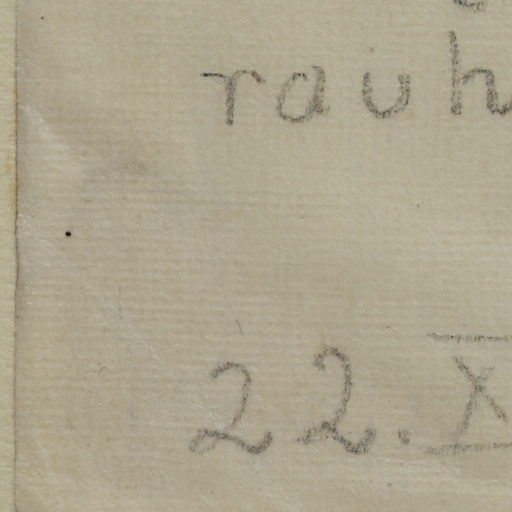 rauh
22. X